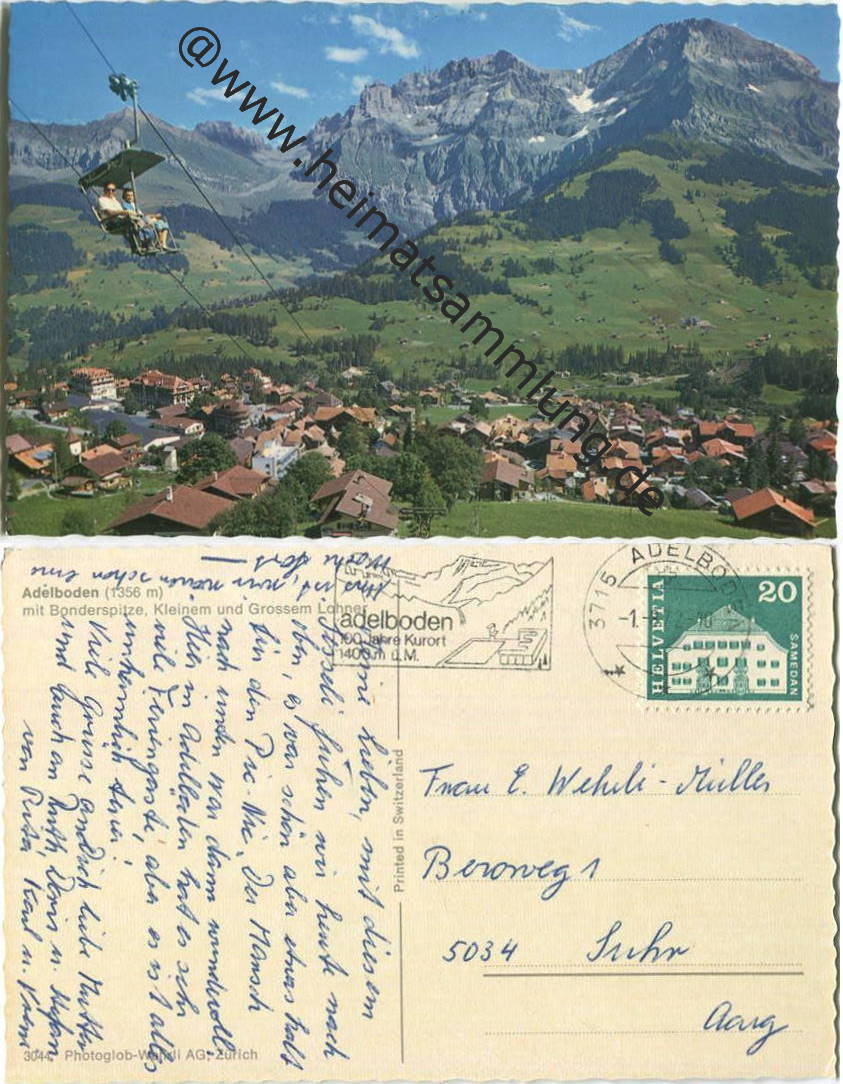 @www.heimatsammlung.de
Adelboden (1356 m)
mit Bonderspitze, Kleinem und Grossem Lohner
adelboden
100 Jahre Kurort
1400 m ü.M.
3715 ADELBODEN
HELVETIA
20
SAMEDAN
Meine Lieben, mit diesem
Sesseli fuhren wir heute nach
oben, es war schön aber etwas kalt
für den Pic-Nic. Der Marsch
nach unten war dann wundervoll.
Hier in Adelboden hat es sehr
viele Feriengäste, aber es ist alles
unheimlich teuer!
Viele Grüsse an dich liebe Mutter
und auch an Ruth, Doris u.
von Rita, Karl u.
Printed in Switzerland
Frau E. Wehrli-Müller
Beroweg 1
5034 Suhr
Aarg
3044 Photoglob-Wehrli AG, Zürich